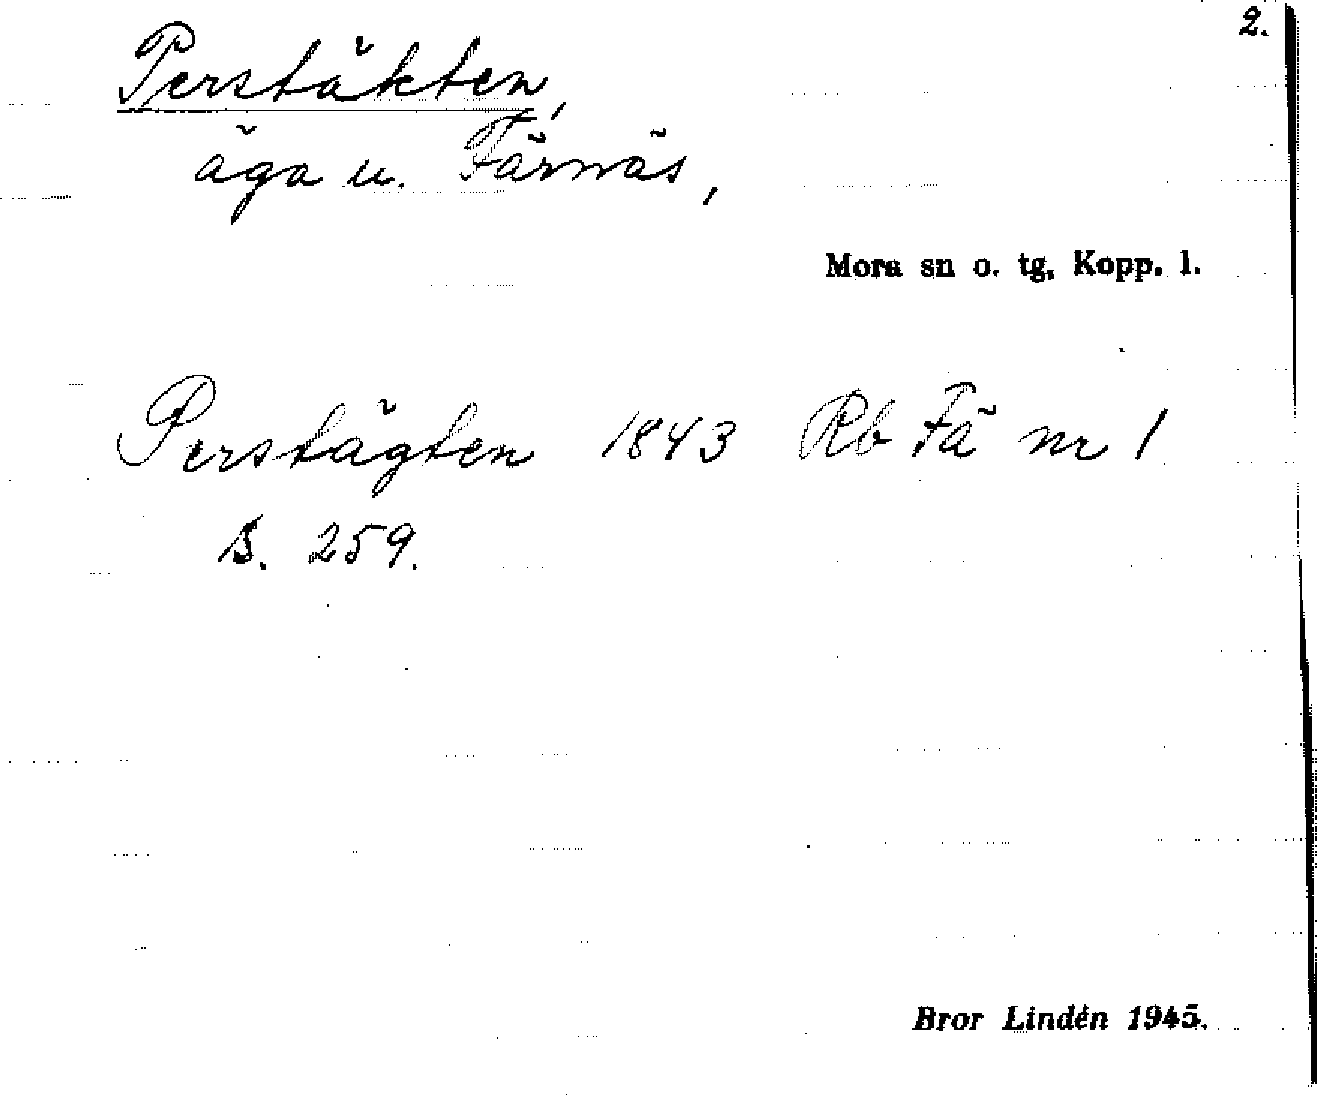 2.
Perstäkten,
äga u. Färnäs,
Mora sn o. tg, Kopp. l.
Perstägten 1843 Rb Fä nr 1
s. 259.
Bror Lindén 1945.